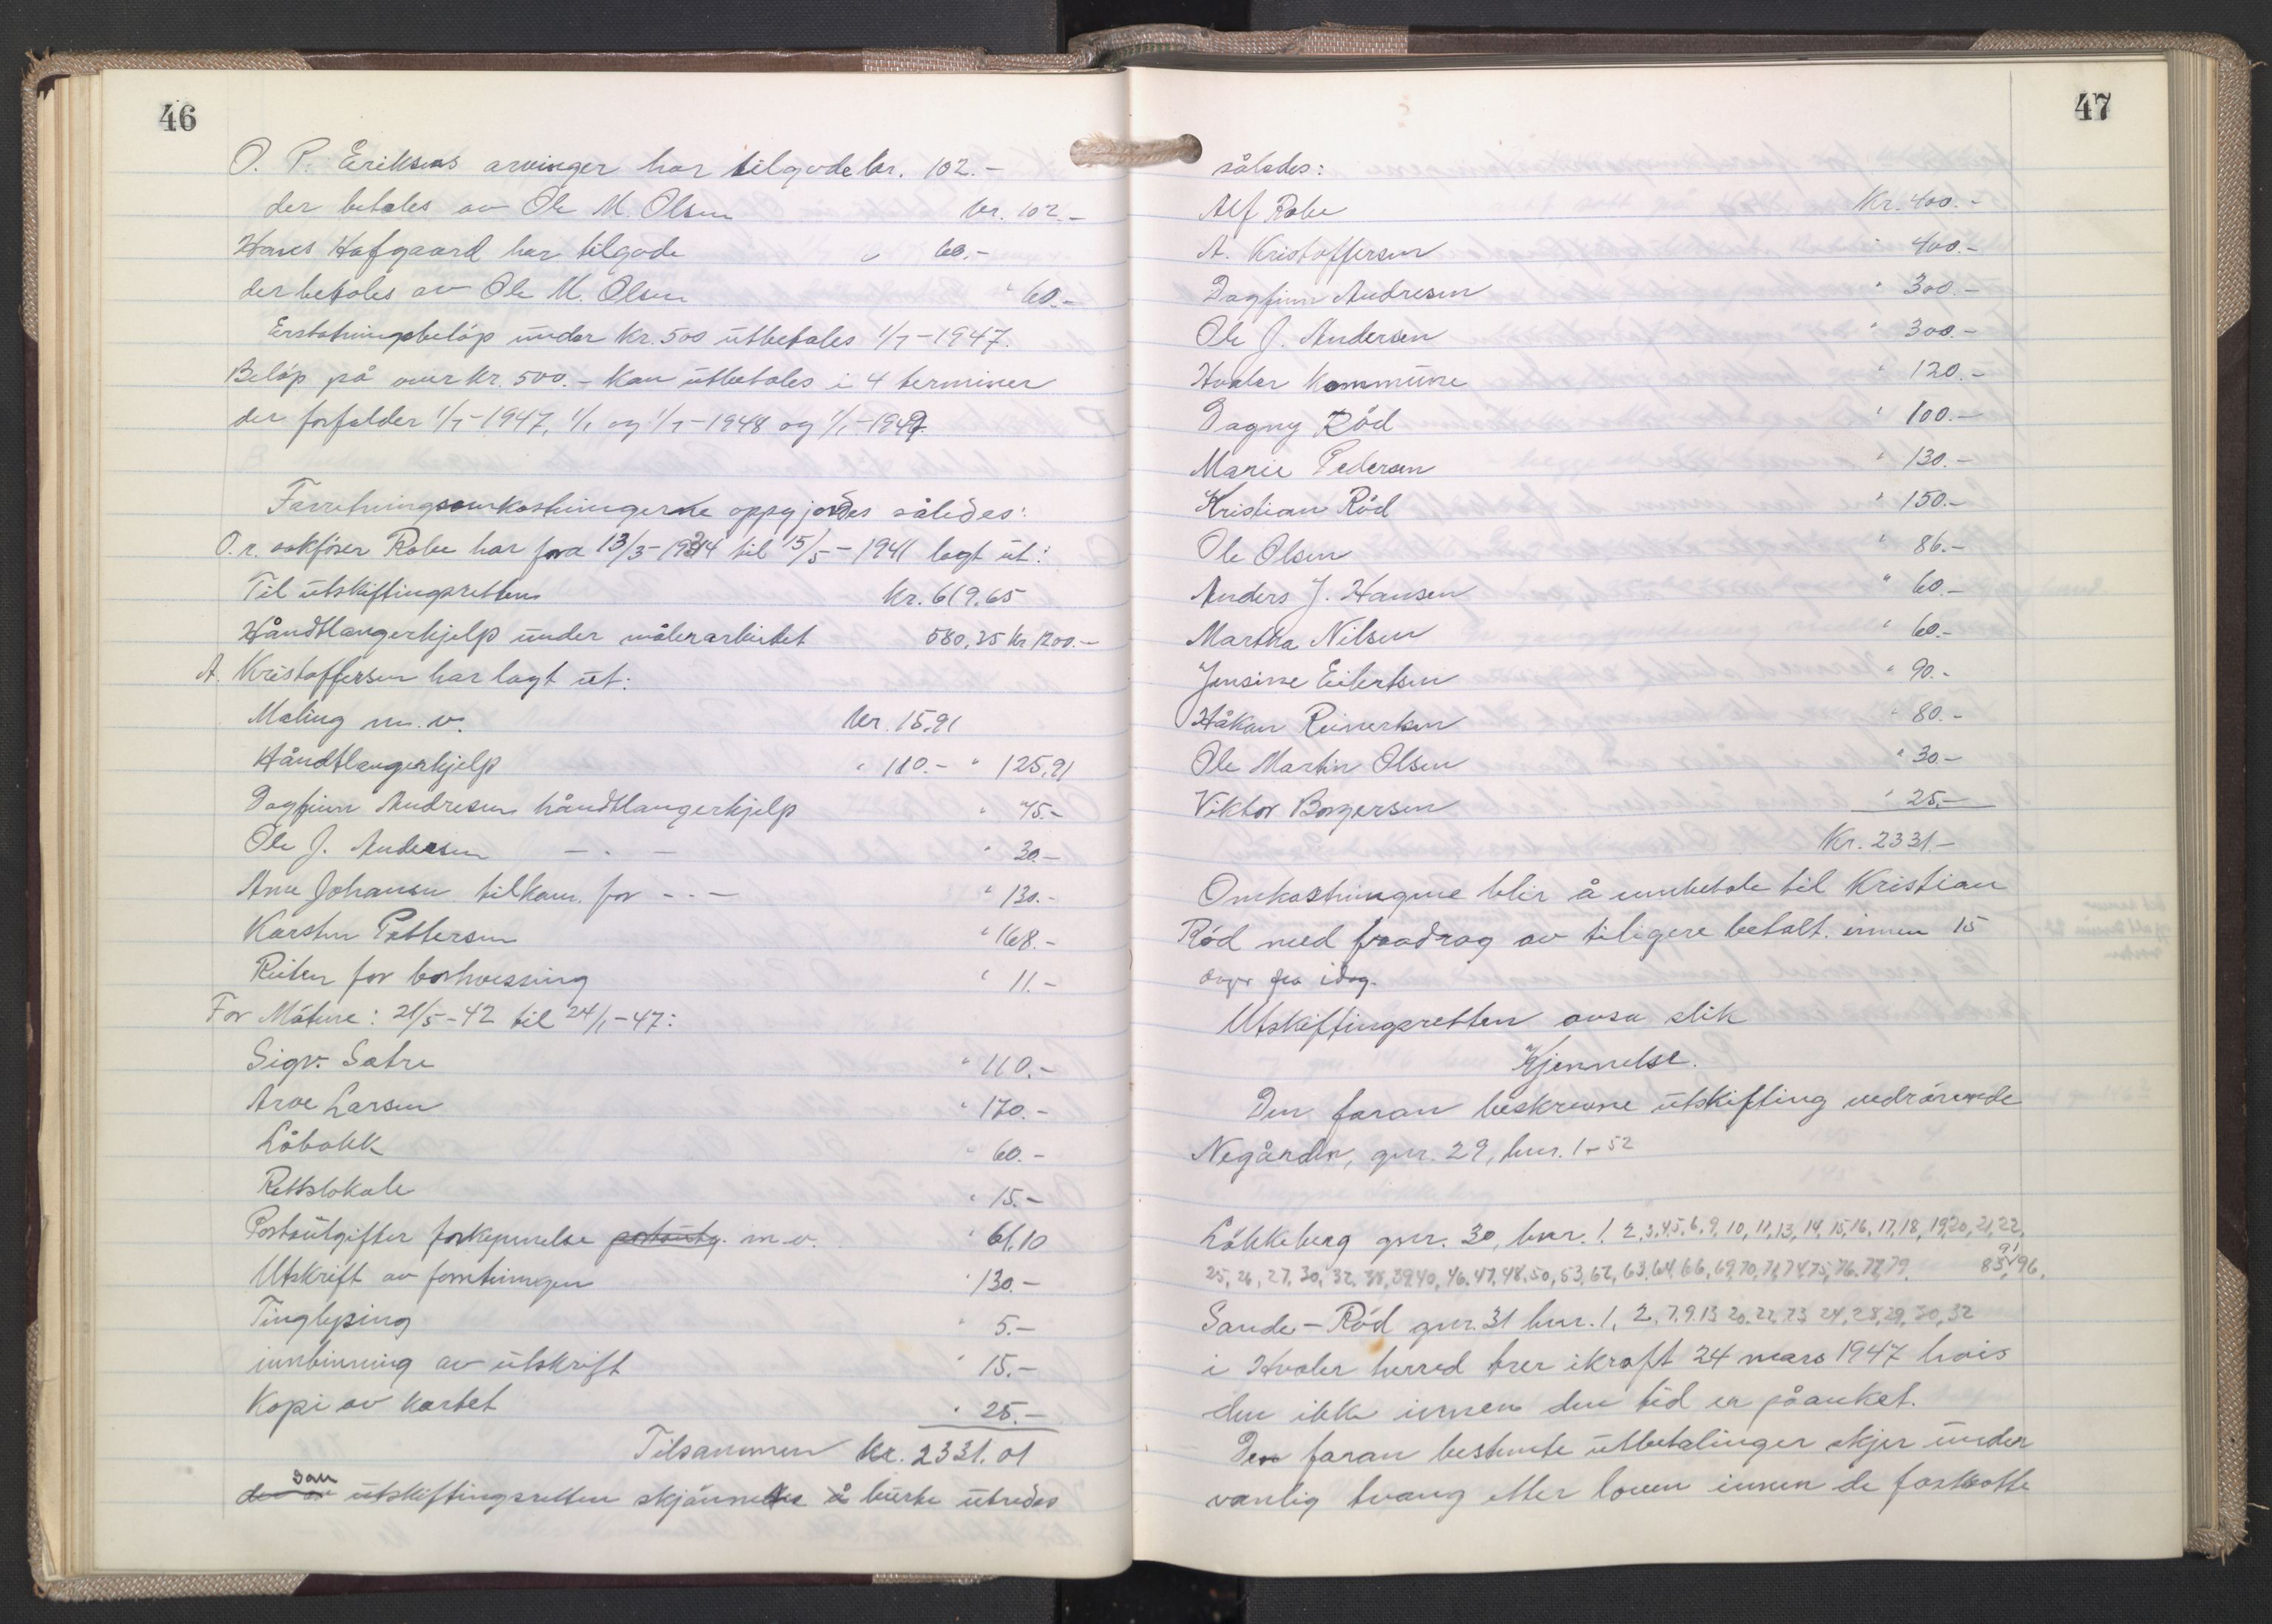 46
O. P. Eriksens arvinger har tilgode kr. 102.-
der betales av Ole M. Olsen kr. 102.-
Hans Hafgaard har tilgode " 60.-
der betales av Ole M. Olsen " 60.-
Erstatningsbeløp under kr. 500 utbetales 1/7-1947.
Beløp på over kr. 500.- kan utbetales i 4 terminer
der forfalder 1/7-1947, 1/1 og 1/7-1948 og 1/1-1949.
Forretningsomkostningerne oppgjordes således:
O.r. sakfører Rabe har fra 13/3-1934 til 15/5-1941 lagt ut:
Til utskiftingsretten kr. 619,65
Håndtlangerhjelp under målerarbeidet 580,35 kr 1200.-
A. Kristoffersen har lagt ut:
Maling m.v. kr. 15,91
Håndtlangerhjelp " 110.- " 125,91
Dagfinn Andresen håndtlangerhjelp " 75.-
Ole J. Andersen - " - " 30.-
Arne Johansen tilkom. for - - - " 130.-
Karsten Pettersen " 168.-
Reiten for borhvessing " 11.-
For Møtene: 21/5-42 til 24/1-47:
Sigv. Sætre " 110.-
Arve Larsen " 170.-
Låbakk " 60.-
Rettslokale " 15.-
Portoutgifter forkynnelse portoutg. m.v. " 61,10
Utskrift av forretningen " 130.-
Tinglysing " 5.-
innbinning av utskrift " 15.-
Kopi av kartet " 25.-
Tilsammen kr. 2331.01
som
den av utskiftingsretten skjønnettes å burte utredes
47
således:
Alf Rabe Kr. 400.-
A. Kristoffersen " 400.-
Dagfinn Andresen " 300.-
Ole J. Andersen " 300.-
Hvaler kommune " 120.-
Dagny Rød " 100.-
Marie Pedersen " 130.-
Kristian Rød " 150.-
Ole Olsen " 86.-
Anders J. Hansen " 60.-
Martha Nilsen " 60.-
Jensine Eilertsen " 90.-
Håkon Reinertsen " 80.-
Ole Martin Olsen " 30.-
Viktor Borgersen " 25.-
Kr. 2331.-
Omkostningene blir å innbetale til Kristian
Rød med fradrag av tiligere betalt. innen 15
dager fra idag.
Utskiftingsretten avsa slik
Kjennelse.
Den foran beskrevne utskifting vedrørende
Negården, gnr. 29, bnr. 1-52
Løkkeberg gnr. 30, bnr. 1, 2, 3, 4, 5, 6, 9, 10, 11, 13, 14, 15, 16, 17, 18, 19, 20, 21, 22,
25, 26, 27, 30, 32, 38, 39, 40, 46, 47, 48, 50, 53, 62, 63, 64, 66, 69, 70, 71, 74, 75, 76, 77, 79, 83, 91, 96,
Sande-Rød gnr. 31 bnr. 1, 2, 7, 9, 13, 20, 22, 23, 24, 28, 29, 30, 32
i Hvaler herred trer ikraft 24 mars 1947 hvis
den ikke innen den tid er påanket.
Den foran bestemte utbetalinger skjer under
vanlig tvang etter loven innen de fastsatte